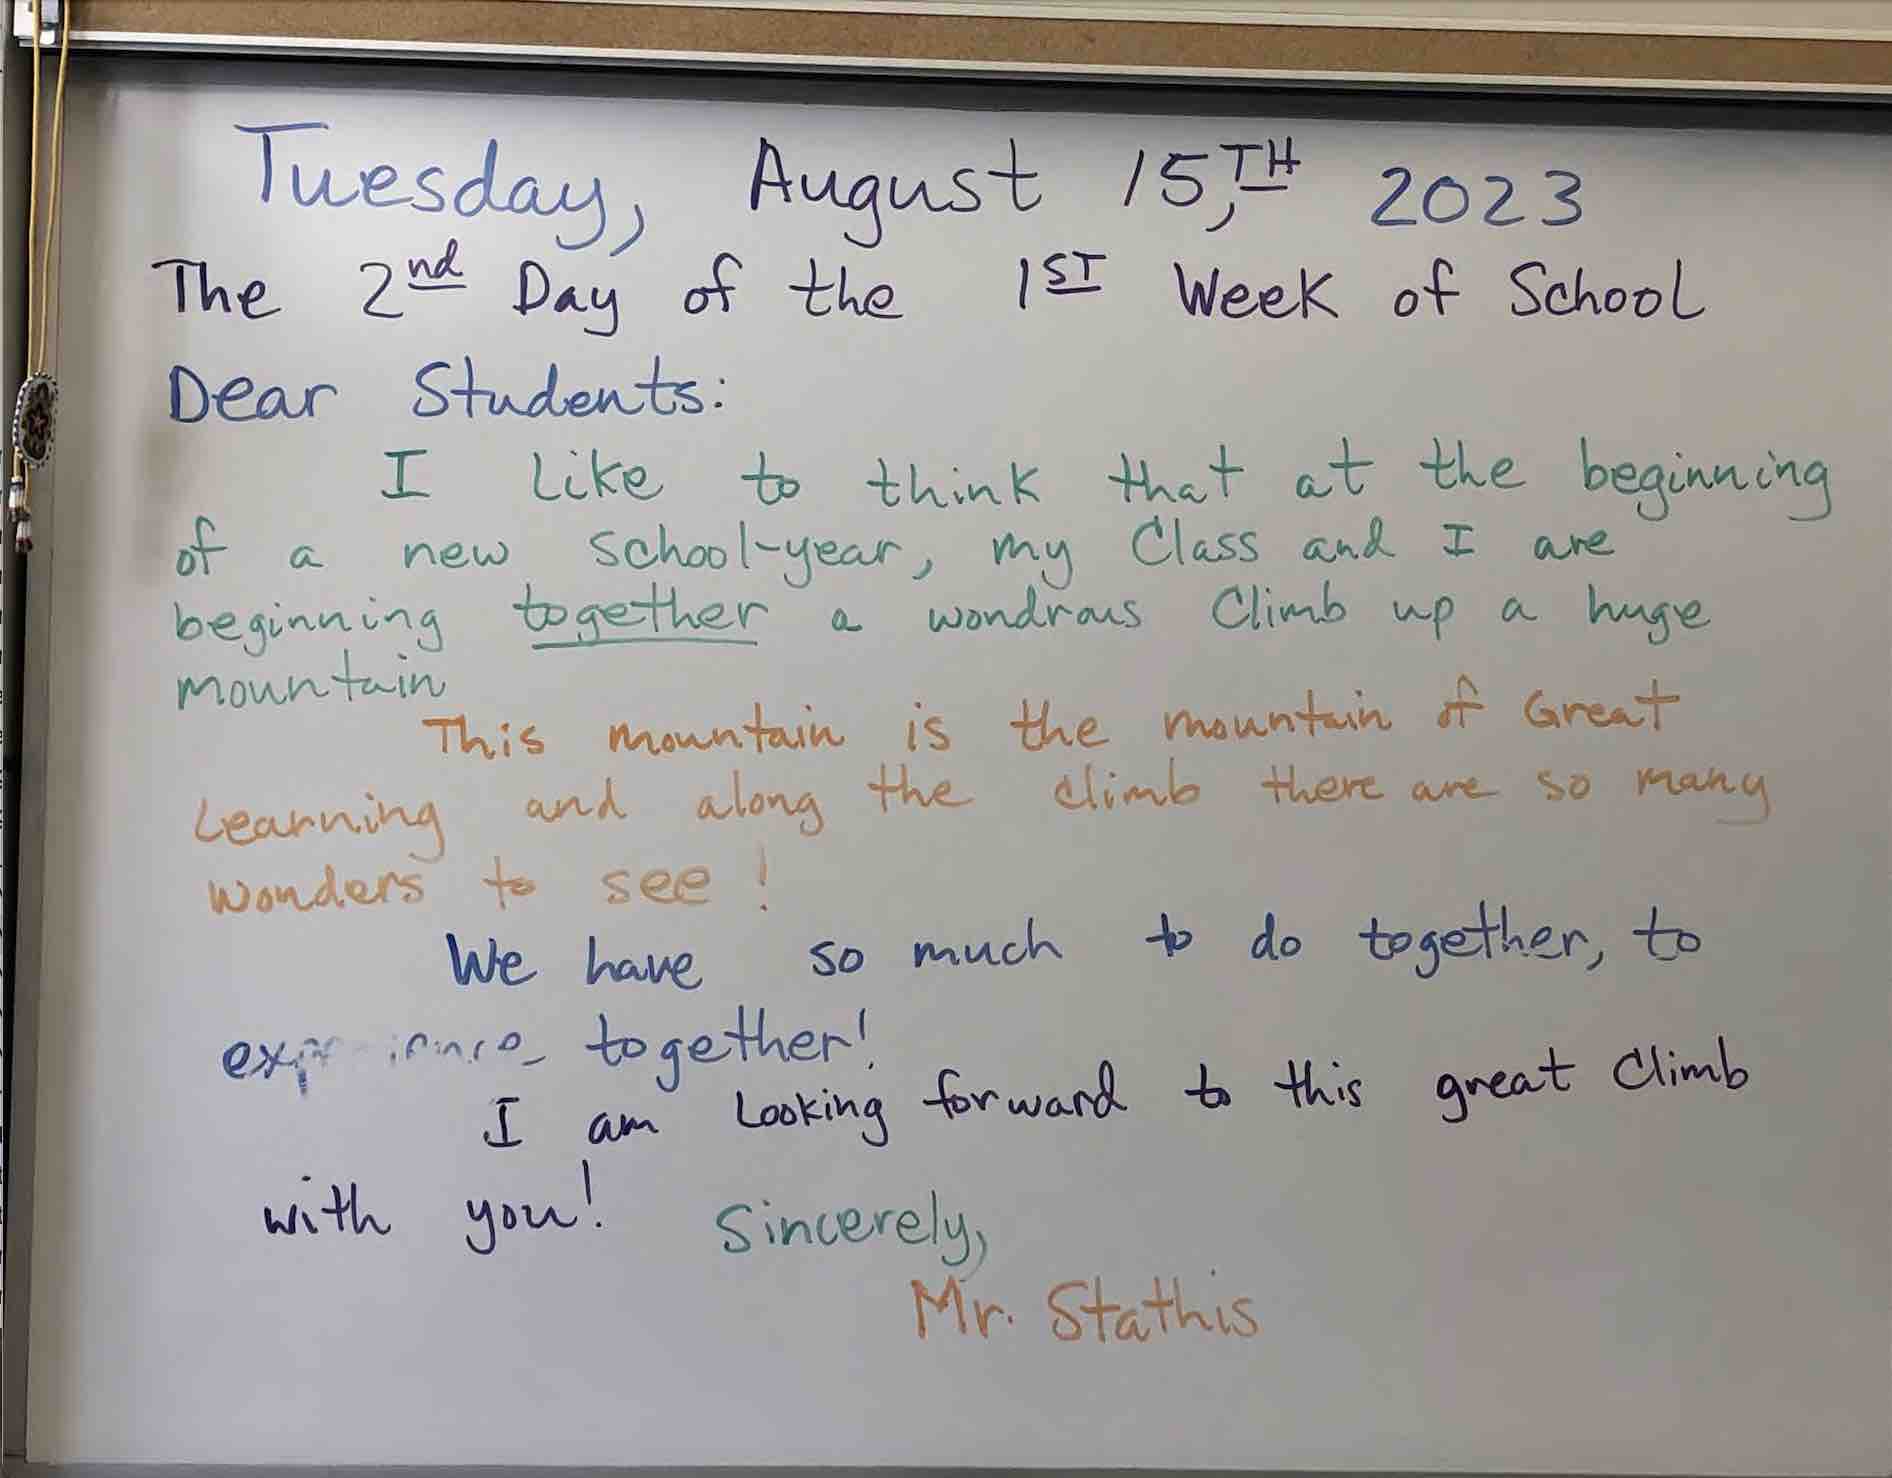 Tuesday, August 15,TH 2023
The 2nd Day of the 1ST Week of School
Dear Students:
I like to think that at the beginning
of a new school-year, my Class and I are
beginning together a wondrous Climb up a huge
mountain
This mountain is the mountain of Great
Learning and along the climb there are so many
wonders to see!
We have so much to do together, to
experience together!
I am Looking forward to this great Climb
with you! Sincerely,
Mr. Stathis